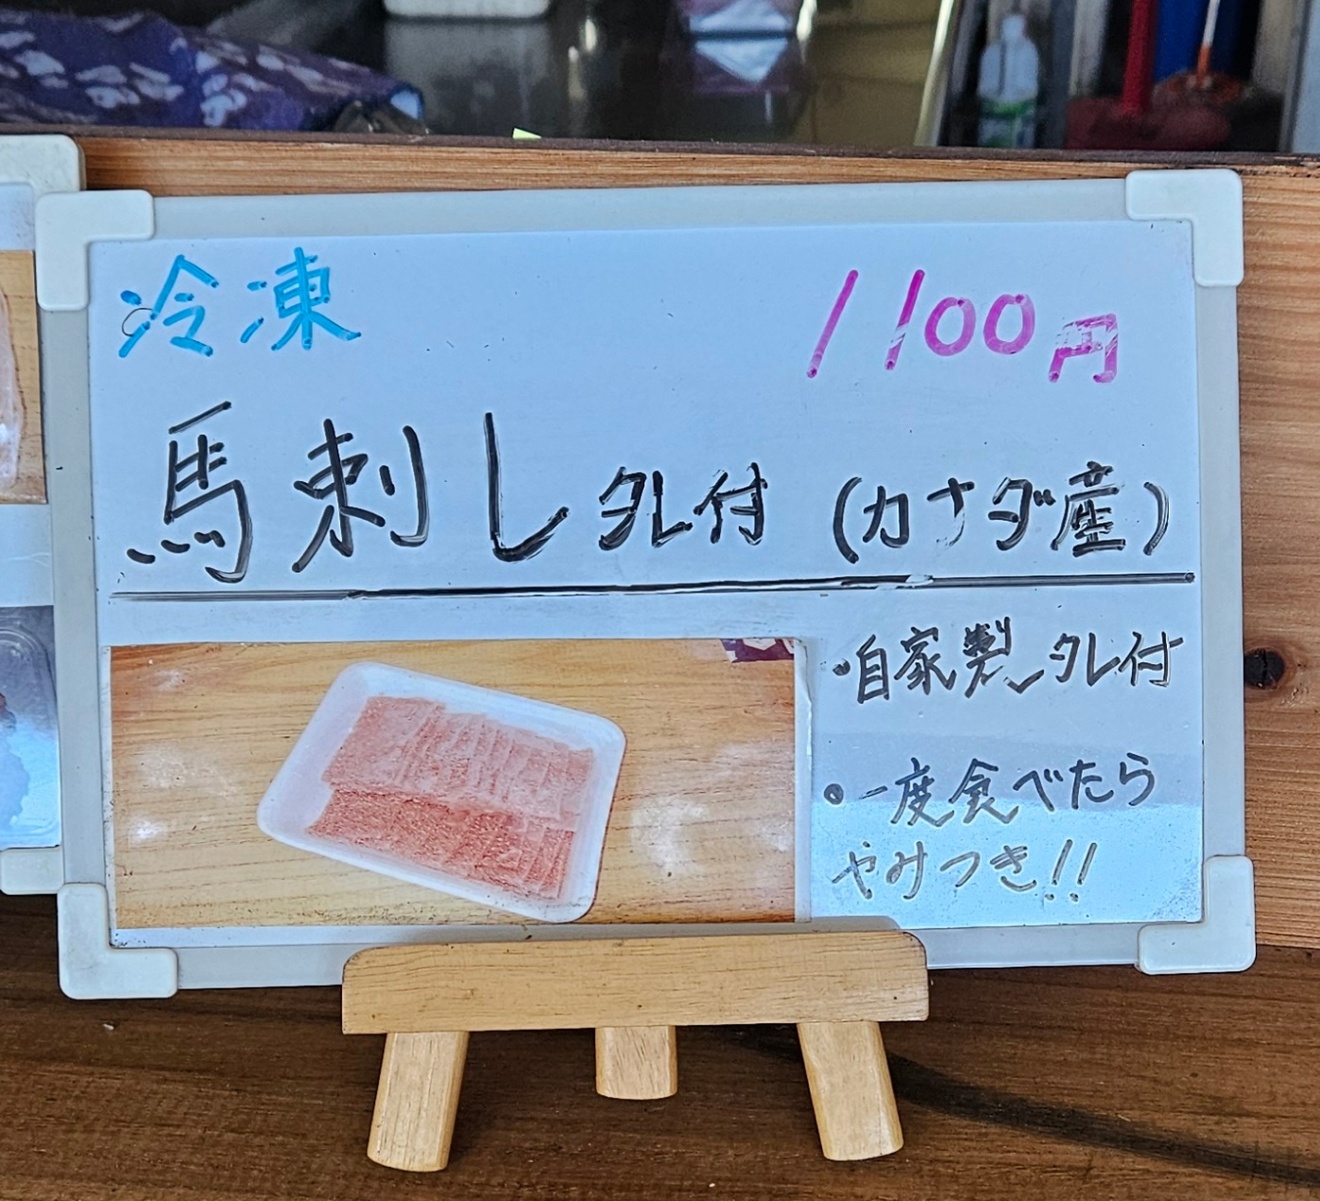 冷凍 1100円
馬刺し タレ付 (カナダ産)
・自家製タレ付
・一度食べたら
やみつき!!